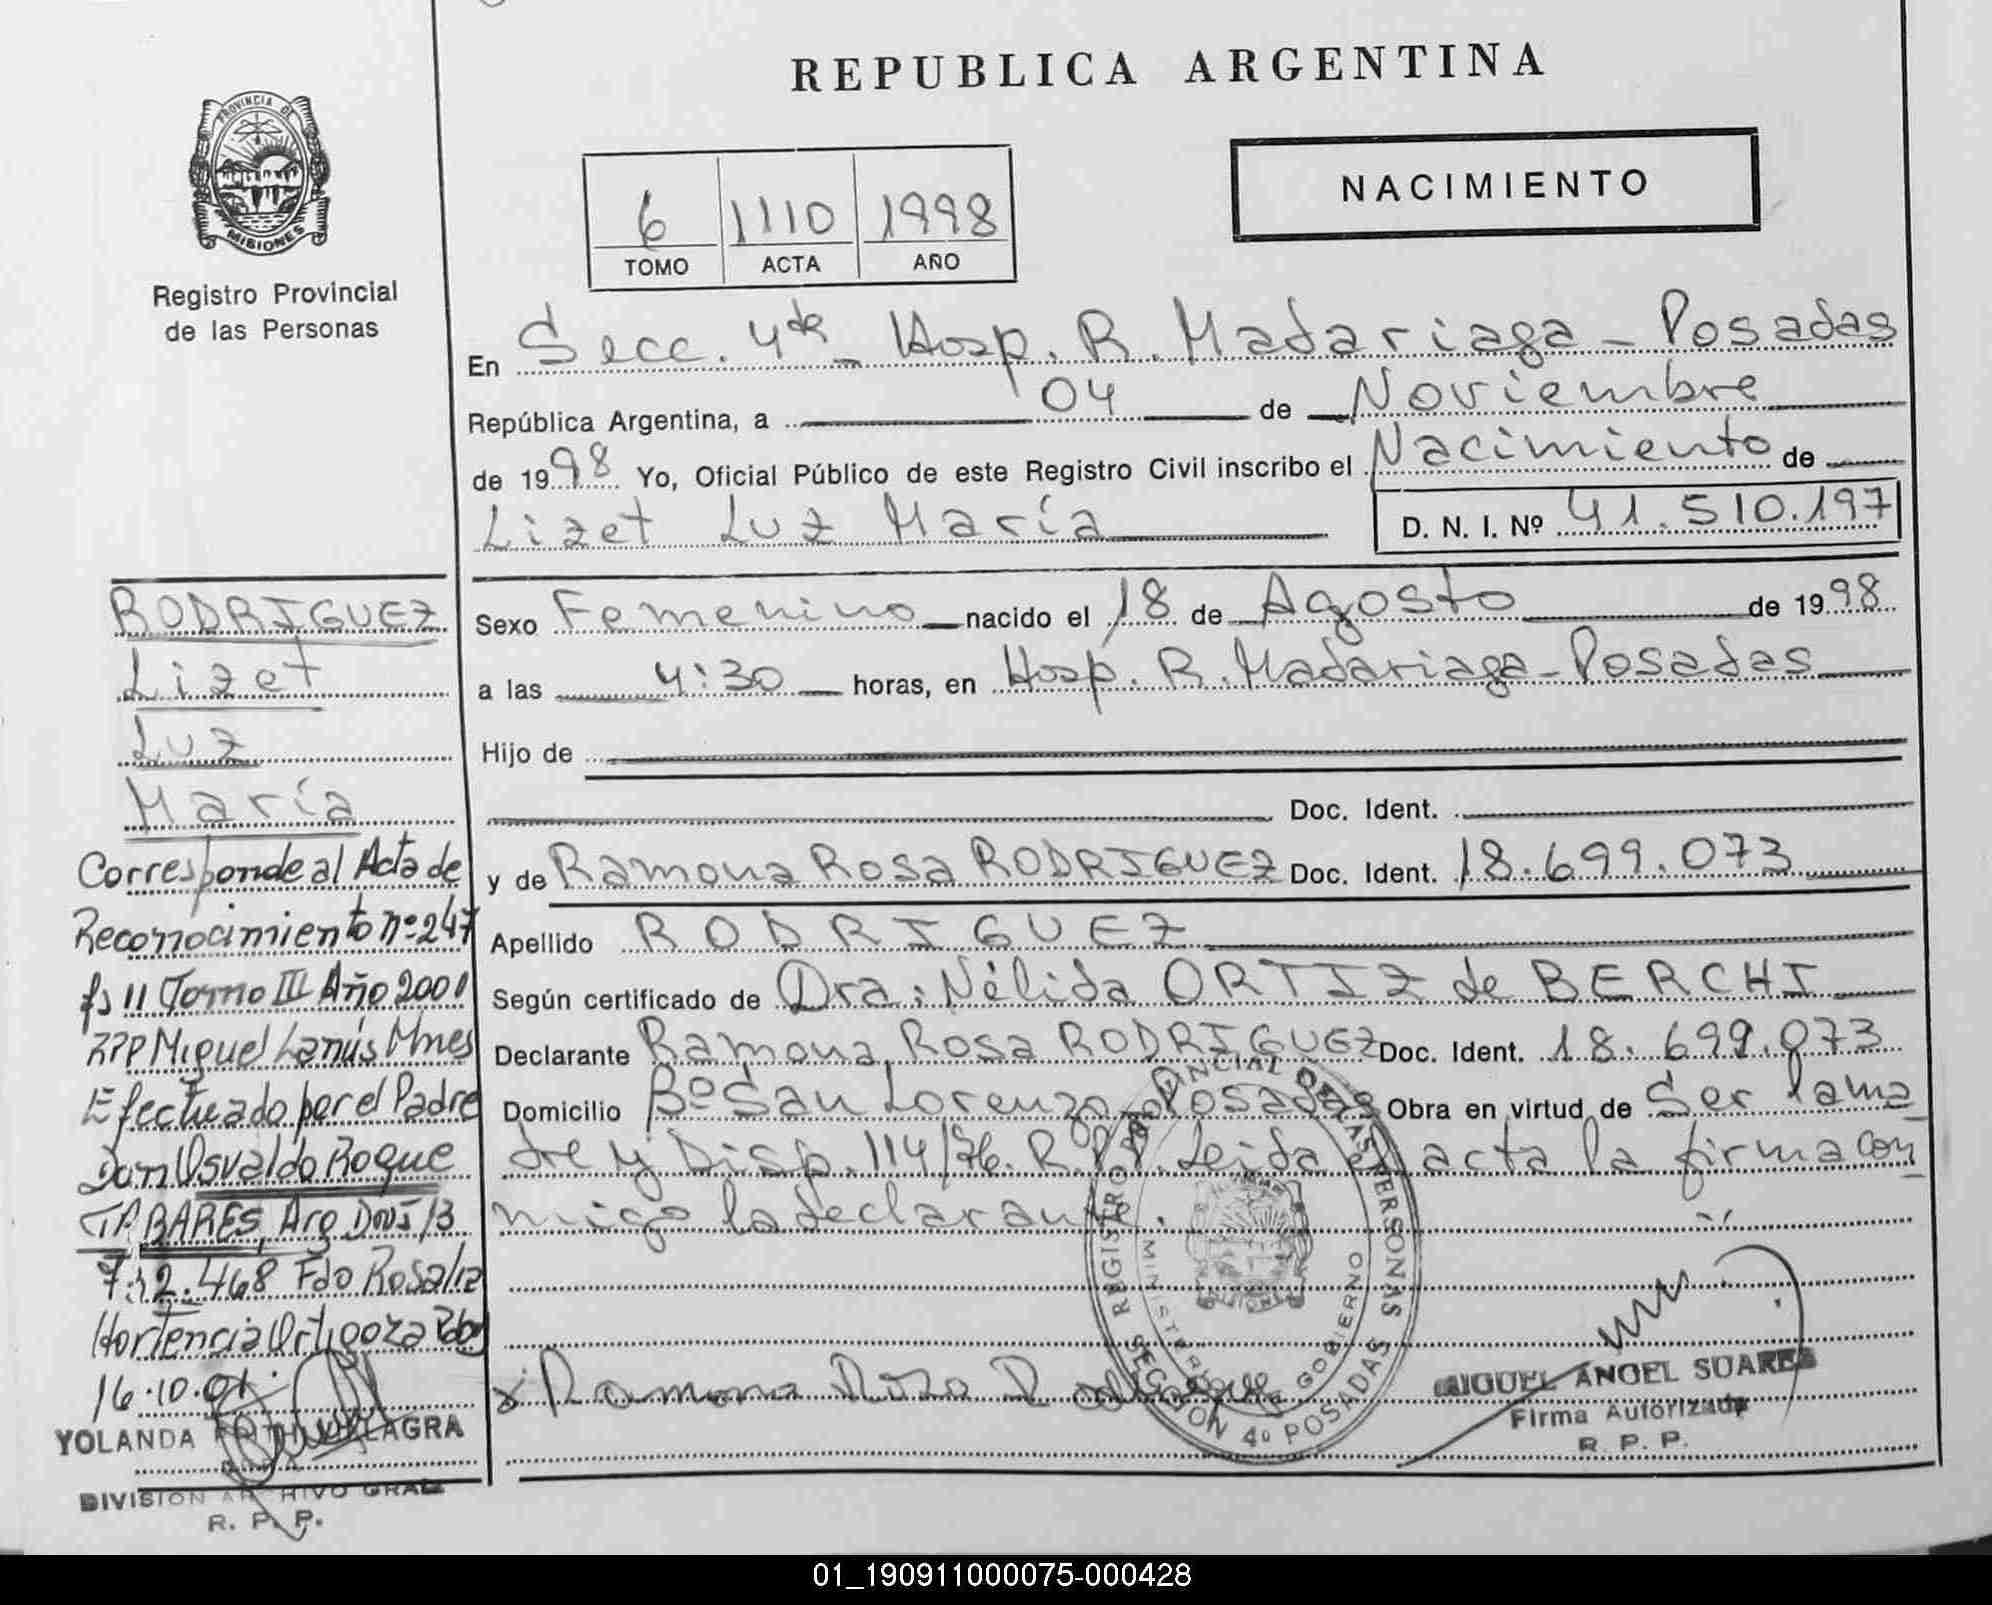 REPUBLICA ARGENTINA
PROVINCIA DE
MISIONES
Registro Provincial
de las Personas
NACIMIENTO
6 1110 1998
TOMO ACTA AÑO
En Secc. 4ta Hosp. R. Madariaga - Posadas
República Argentina, a 04 de Noviembre
de 1998 Yo, Oficial Público de este Registro Civil inscribo el Nacimiento de
Lizet Luz María D. N. I. Nº 41.510.197
Sexo Femenino nacido el 18 de Agosto de 1998
a las 4:30 horas, en Hosp. R. Madariaga - Posadas
Hijo de
Doc. Ident.
y de Ramona Rosa RODRIGUEZ Doc. Ident. 18.699.073
Apellido RODRIGUEZ
Según certificado de Dra. Nélida ORTIZ de BERCHI
Declarante Ramona Rosa RODRIGUEZ Doc. Ident. 18.699.073
Domicilio Bº San Lorenzo Posadas Obra en virtud de Ser la ma
dre y Disp. 114/76. R.P.P. Leida el acta la firma con
migo la declarante.
x Ramona Rosa
REGISTRO PROVINCIAL DE LAS PERSONAS
MINISTERIO GOBIERNO
SECCION 4º POSADAS
MIGUEL ANGEL SUAREZ
Firma Autorizada
R. P. P.
RODRIGUEZ
Lizet
Luz
María
Corresponde al Acta de
Reconocimiento nº 247
fs 11 Tomo III Año 2001
RPP Miguel Lanús Mnes
Efectuado por el Padre
Don Osvaldo Roque
TABARES, Arg
468 Fdo
Hortencia Ortigoza
16.10.01
YOLANDA VILLAGRA
DIVISION ARCHIVO GRAL
R. P. P.
01_190911000075-000428